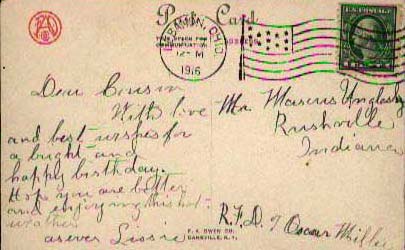 Post Card
LEBANON, OHIO
THIS SPACE FOR
COMMUNICATION
ADDRESS
12-M
1916
U.S. POSTAGE
Dear Cousin
With love
and best wishes for
a bright and
happy birthday.
Hope you are better
and enjoying this hot
weather
as ever
Mr Marcus
Rushville
Indiana
R.F.D. 9 Oscar Miller
F. A. OWEN CO.
DANSVILLE, N.Y.